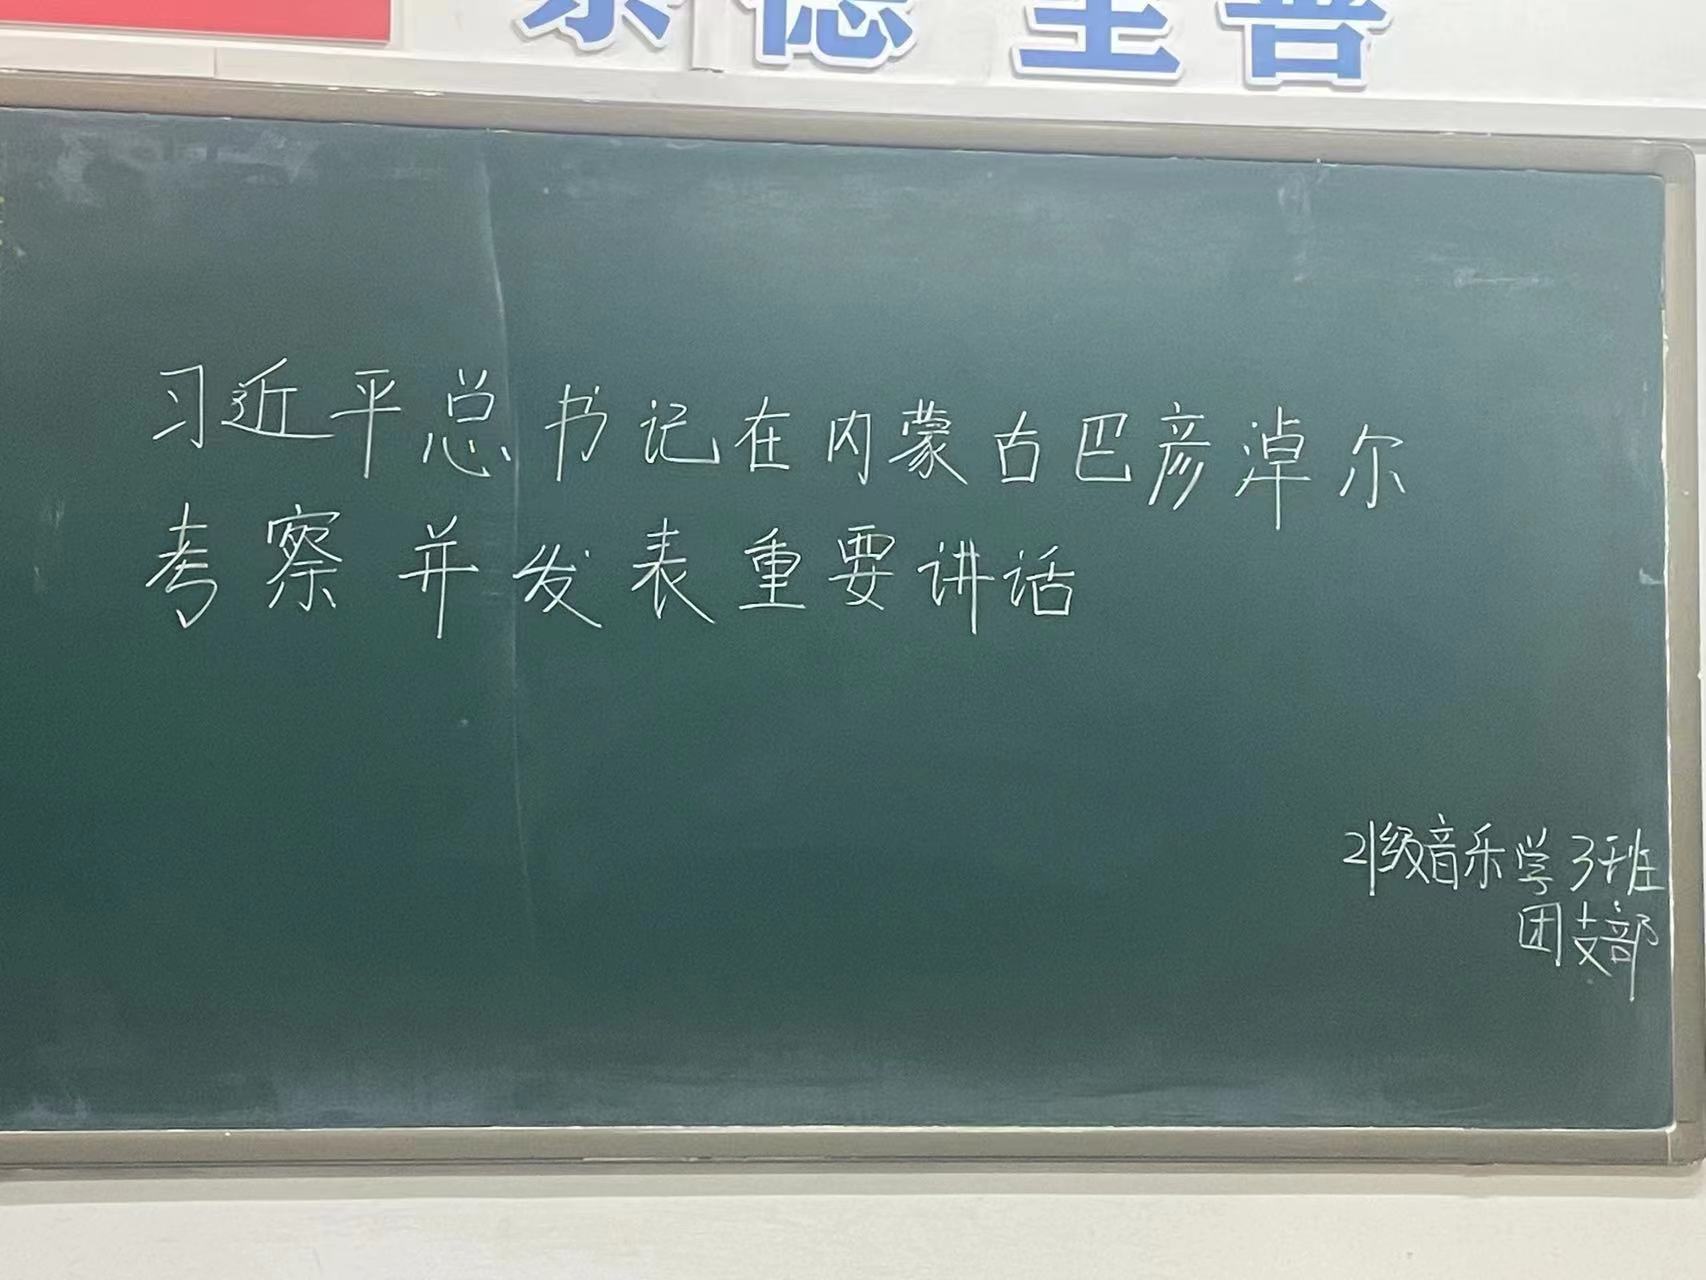 崇德至善
习近平总书记在内蒙古巴彦淖尔
考察并发表重要讲话
21级音乐学3班
团支部